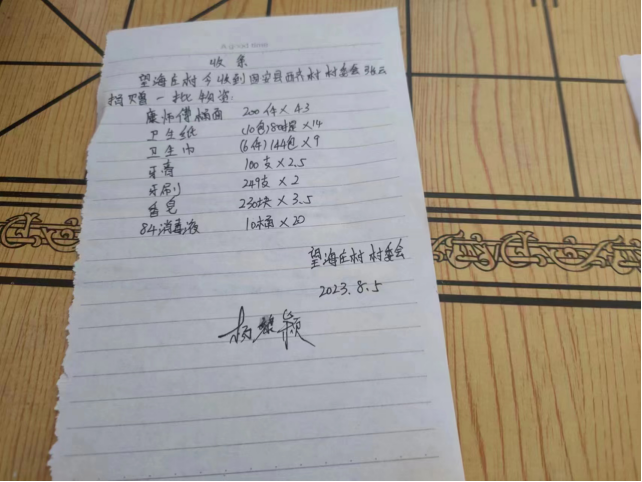 A good time
收条
望海庄村今收到固安县西 村村委会张云
捐赠一批物资:
康师傅桶面 200件×43
卫生纸 (10包)80提×14
卫生巾 (6件)144包×9
牙膏 100支×2.5
牙刷 249支×2
香皂 230块×3.5
84消毒液 10桶×20
望海庄村村委会
2023.8.5
杨 颖